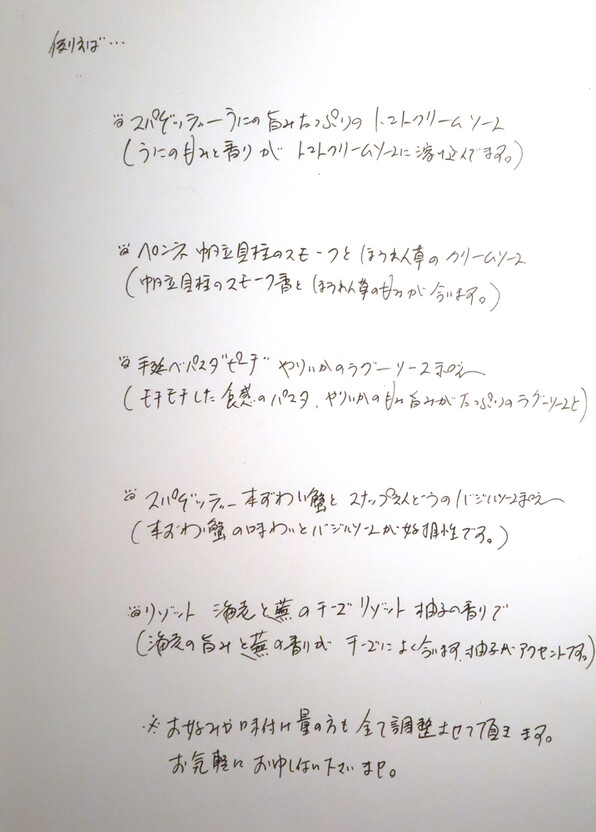 例えば…
スパゲッティー うにの旨みたっぷりの トマトクリームソース
(うにの甘みと香りが トマトクリームソースに溶け込んでます。)
ペンネ 帆立貝柱のスモークと ほうれん草の クリームソース
(帆立貝柱のスモーク香と ほうれん草の甘みが合います。)
手延べパスタ"ピチ" やりいかのラグーソース和え
(モチモチした食感のパスタ、やりいかの甘み旨みがたっぷりのラグーソースと)
スパゲッティー 本ずわい蟹と スナップえんどうの バジルソース和え
(本ずわい蟹の味わいとバジルソースが好相性です。)
リゾット 海老と蕪のチーズリゾット 柚子の香りで
(海老の旨みと蕪の香りが チーズによく合います。柚子がアクセントです。)
※ お好みや味付け量の方も全て調整させて頂きます。
お気軽に お申し付け下さいませ。